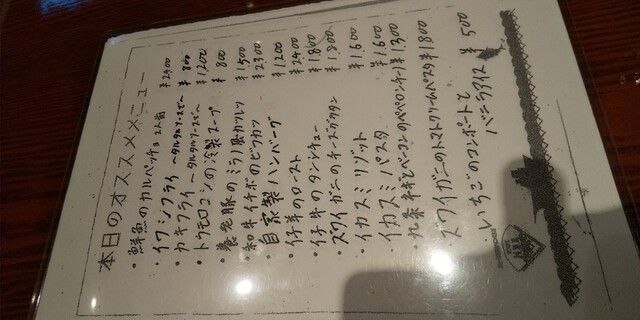 本日のオススメメニュー
・鮮魚のカルパッチョ 2人前 ¥2400
・イワシフライ 〜タルタルソースで〜 ¥800
・カキフライ 〜タルタルソースで〜 ¥1200
・トウモロコシの冷製スープ ¥800
・養老豚のミラノ風カツレツ ¥1500
・和牛イチボのビフカツ ¥2300
・自家製ハンバーグ ¥1200
・仔羊のロースト ¥2400
・仔牛のタンシチュー ¥1800
・ズワイガニのチーズグラタン ¥1800
・イカスミリゾット ¥1600
・イカスミパスタ ¥1600
・九条ネギとベーコンのペペロンチーノ ¥1300
・ズワイガニのトマトクリームパスタ ¥1800
・いちごのコンポートと
バニラアイス ¥500